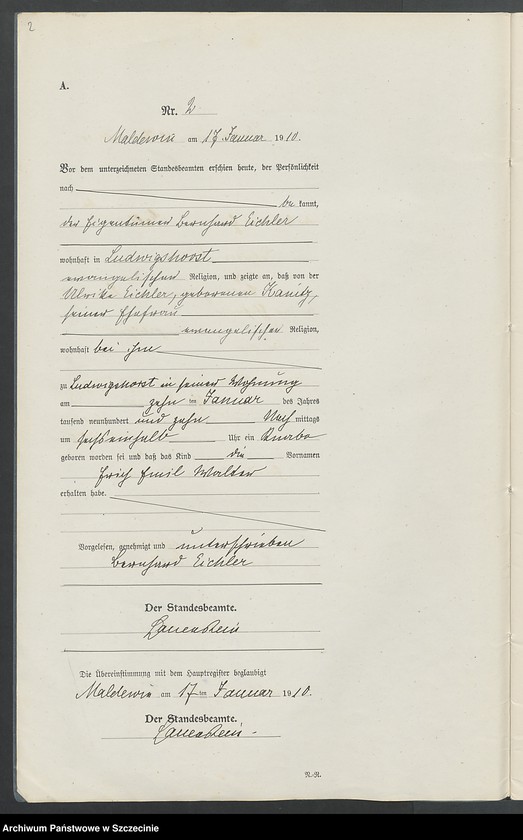 2
A.
Nr. 2
Maldewin am 17 Januar 1910.
Vor dem unterzeichneten Standesbeamten erschien heute, der Persönlichkeit
nach
be kannt,
der Eigentümer Bernhard Eichler
wohnhaft in Ludwigshorst
evangelischer Religion, und zeigte an, daß von der
Ulrike Eichler, geborenen Kanitz,
seiner Ehefrau
evangelischer Religion,
wohnhaft bei ihm
zu Ludwigshorst in seiner Wohnung
am zehn ten Januar des Jahres
tausend neunhundert und zehn Nach mittags
um sechseinhalb Uhr ein Knabe
geboren worden sei und daß das Kind die Vornamen
Erich Emil Walter
erhalten habe.
Vorgelesen, genehmigt und unterschrieben
Bernhard Eichler
Der Standesbeamte.
Lauenstein
Die Übereinstimmung mit dem Hauptregister beglaubigt
Maldewin am 17 ten Januar 1910.
Der Standesbeamte.
Lauenstein.
N.-R.
Archiwum Państwowe w Szczecinie